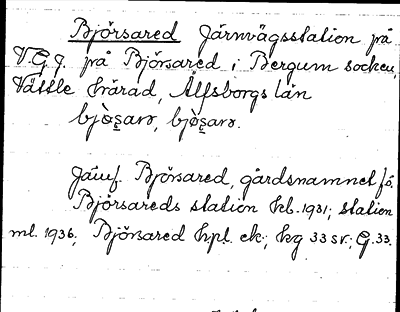 Björsared Järnvägsstation på
V.G.J. på Björsared i Bergum socken,
Vättle härad, Älfsborgs län
Jämf. Björsared, gårdsnamnet fö.
Björsareds station hl. 1931; station
ml. 1936, Björsared hpl. ek.; hg 33 sv.; G.33.